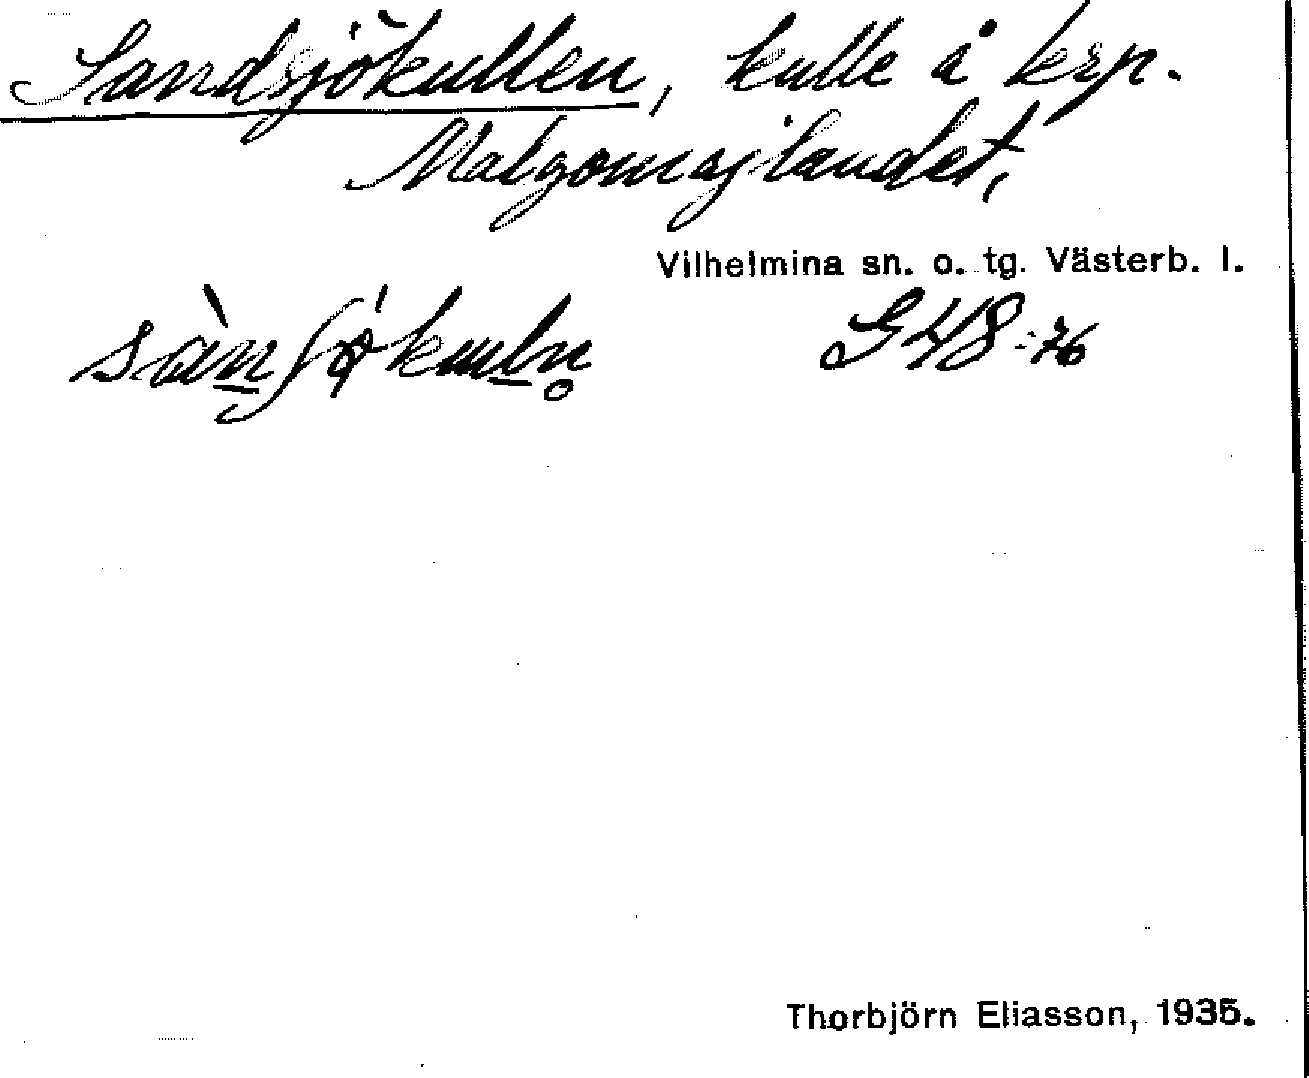 Sandsjökullen, kulle å krp.
Malgomajlandet,
Vilhelmina sn. o. tg. Västerb. l.
G48:76
Thorbjörn Eliasson, 1935.